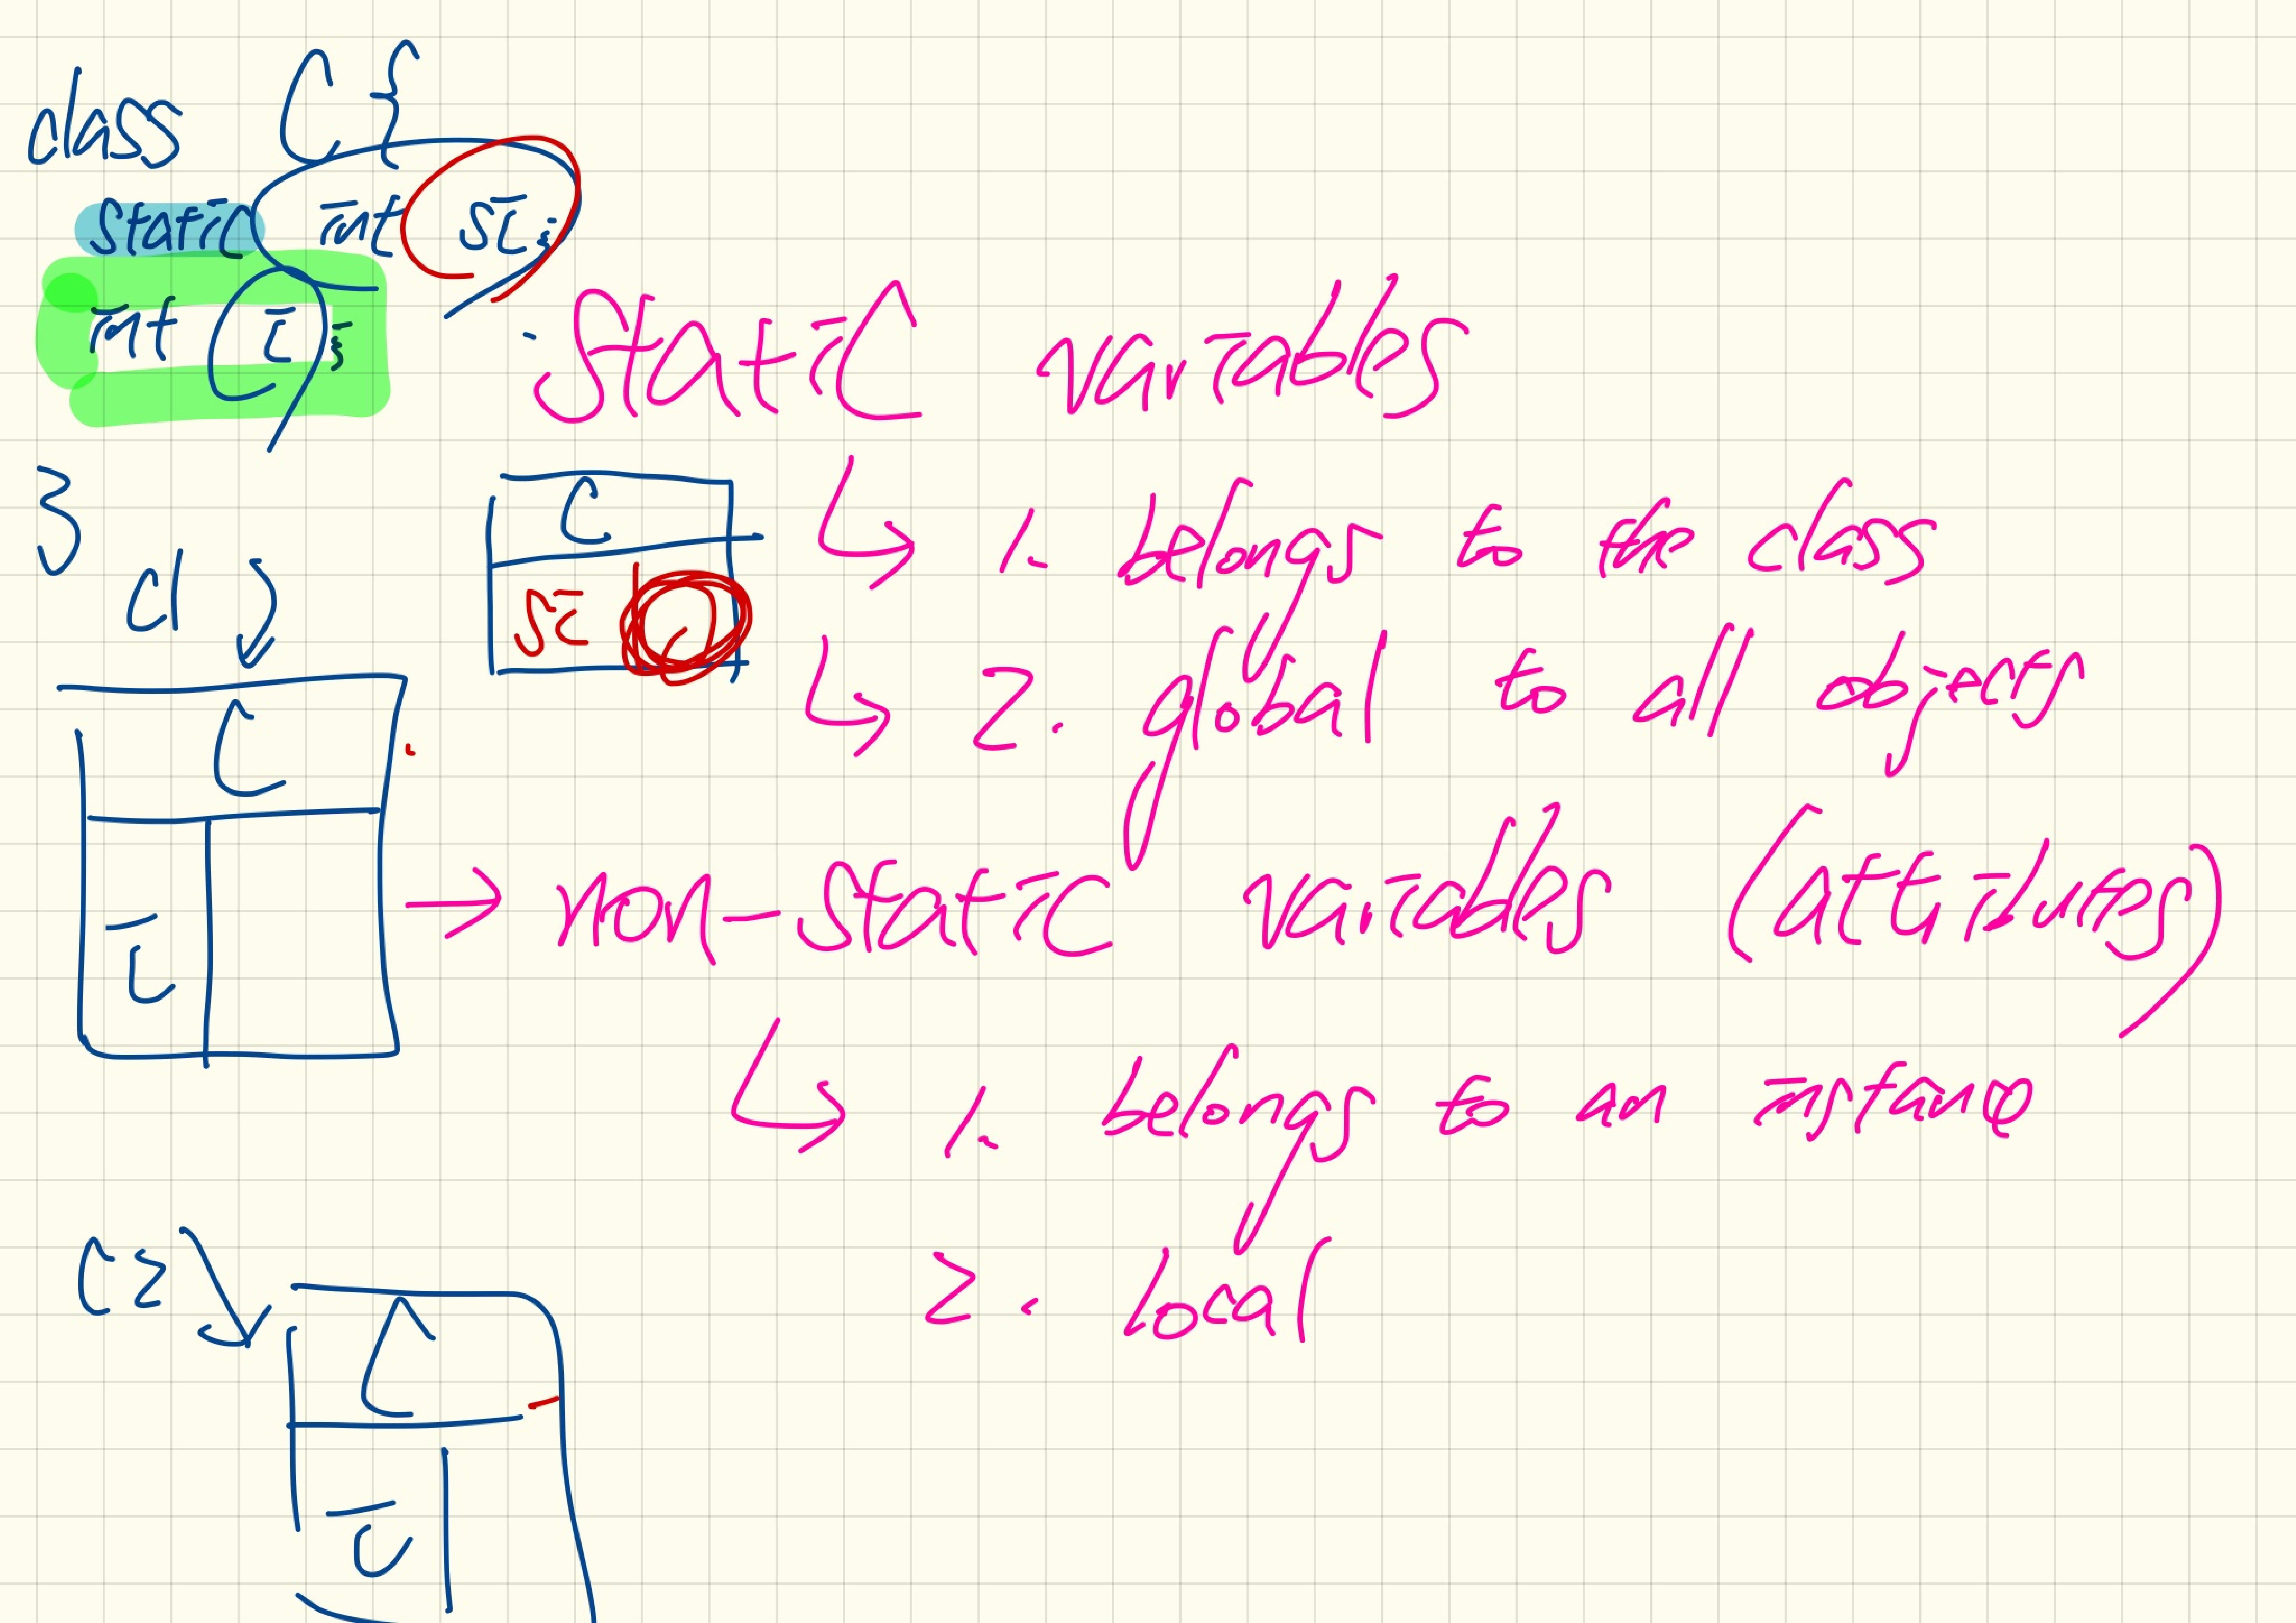 class C {
static int si;
int i;
}
static variables
C
1. belongs to the class
si
c1
2. global to all objects
C
i
→ non-static variables (attributes)
1. belongs to an instance
c2
2. local
C
i